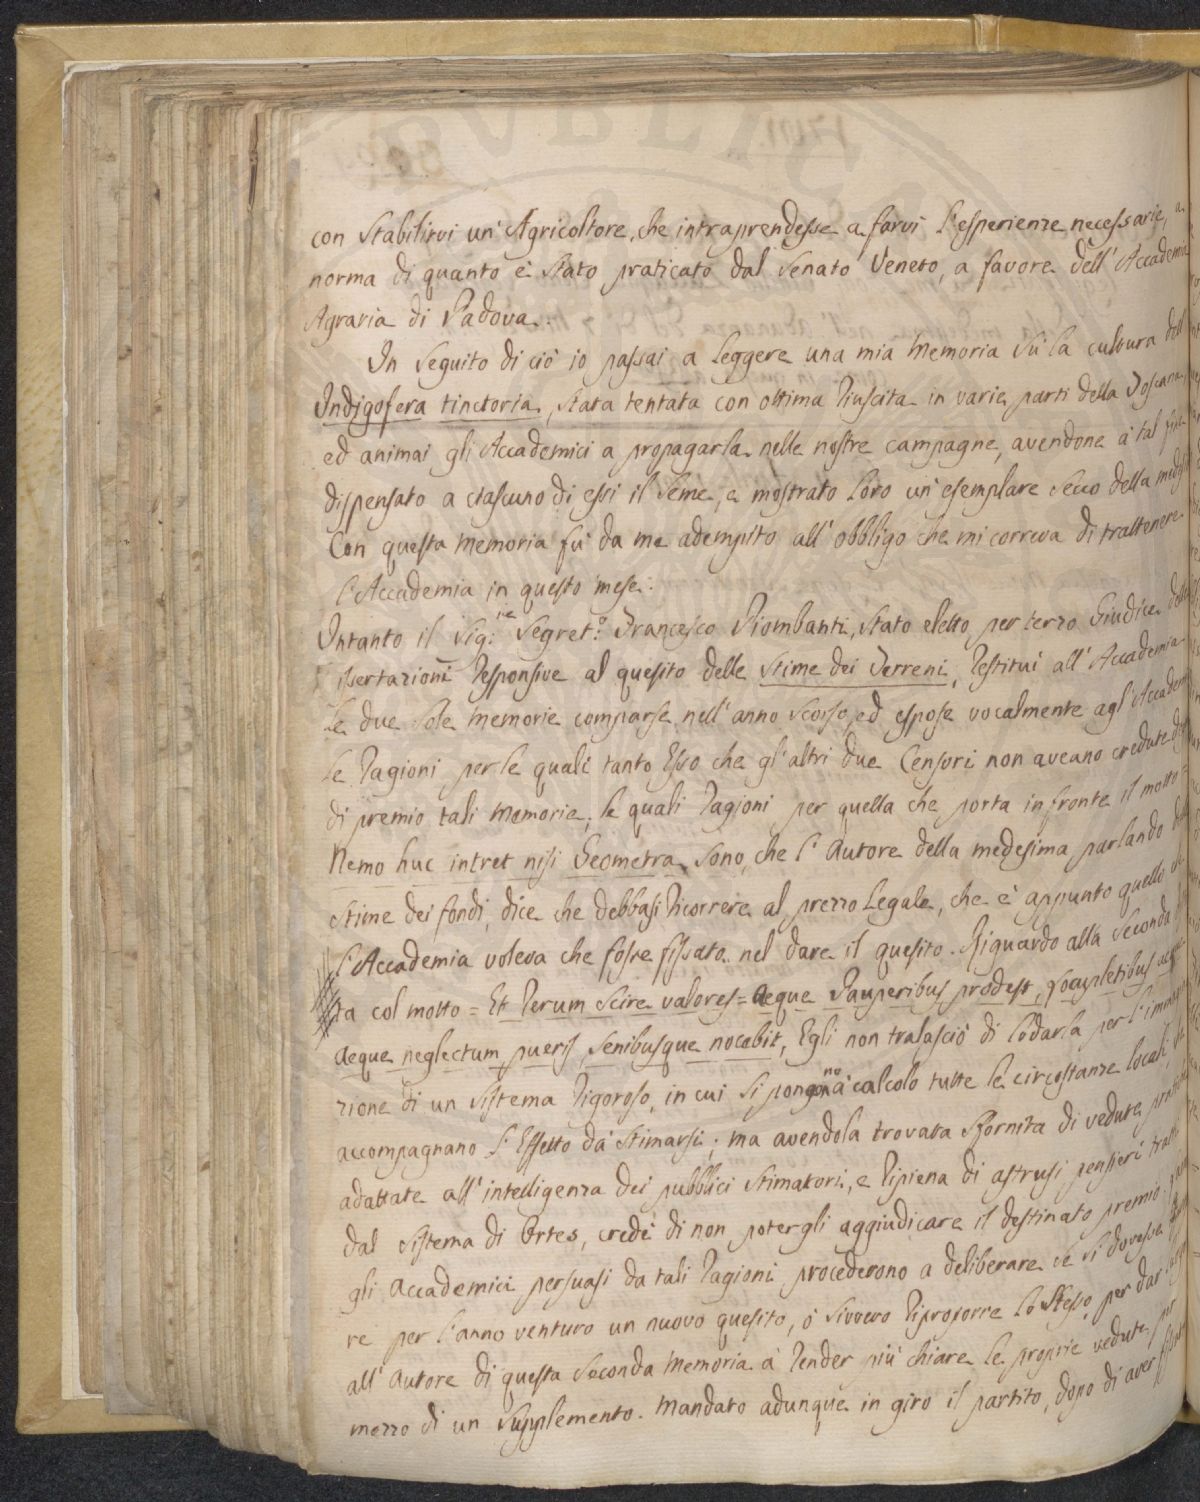 PVBLICA
con stabilirvi un' Agricoltore, che intraprendesse a farvi l'esperienze necessarie, a
norma di quanto è stato praticato dal Senato Veneto, a favore dell' Accademia
Agraria di Padova.
In seguito di ciò io passai a leggere una mia Memoria sù la cultura dell
Indigofera tinctoria, stata tentata con ottima riuscita in varie parti della Toscana,
ed animai gli Accademici a propagarla nelle nostre campagne, avendone à tal fine
dispensato a ciascuno di essi il seme, e mostrato loro un' esemplare secco della
Con questa Memoria fù da me adempito all' obbligo che mi correva di trattenere
l'Accademia in questo mese.
Intanto il Sig:re Segret:o Francesco Piombanti, stato eletto per terzo Giudice delle
ssertazioni responsive al quesito delle Stime dei Terreni, restituì all' Accademia
le due sole memorie comparse nell' anno scorso, ed espose vocalmente agl' Accadem
le ragioni per le quali tanto Esso che gl' altri due Censori non aveano credute
di premio tali Memorie; le quali ragioni per quella che porta in fronte il motto =
Nemo huc intret nisi Geometra, sono, che l' Autore della medesima parlando
stime dei fondi, dice che debbasi ricorrere al prezzo Legale, che è appunto quello
l'Accademia voleva che fosse fissato nel dare il quesito. Riguardo alla seconda
ta col motto = Et rerum scire valores = aeque Pauperibus prodest, locupletibus
aeque neglectum pueris, senibusque nocebit, Egli non tralasciò di lodarla per l'
zione di un sistema rigoroso, in cui si pongono à calcolo tutte le circostanze locali
accompagnano l' Effetto da stimarsi; ma avendola trovata sfornita di vedute
adattate all' intelligenza dei pubblici Stimatori, e ripiena di astrusi pensieri tratti
dal sistema di Ortes, credè di non potergli aggiudicare il destinato premio.
gli Accademici persuasi da tali ragioni procederono a deliberare se si dovesse
re per l'anno venturo un nuovo quesito, ò sivvero riproporre lo stesso, per dar
all' Autore di questa seconda Memoria à render più chiare le proprie vedute, per
mezzo di un supplemento. Mandato adunque in giro il partito, dopo di aver